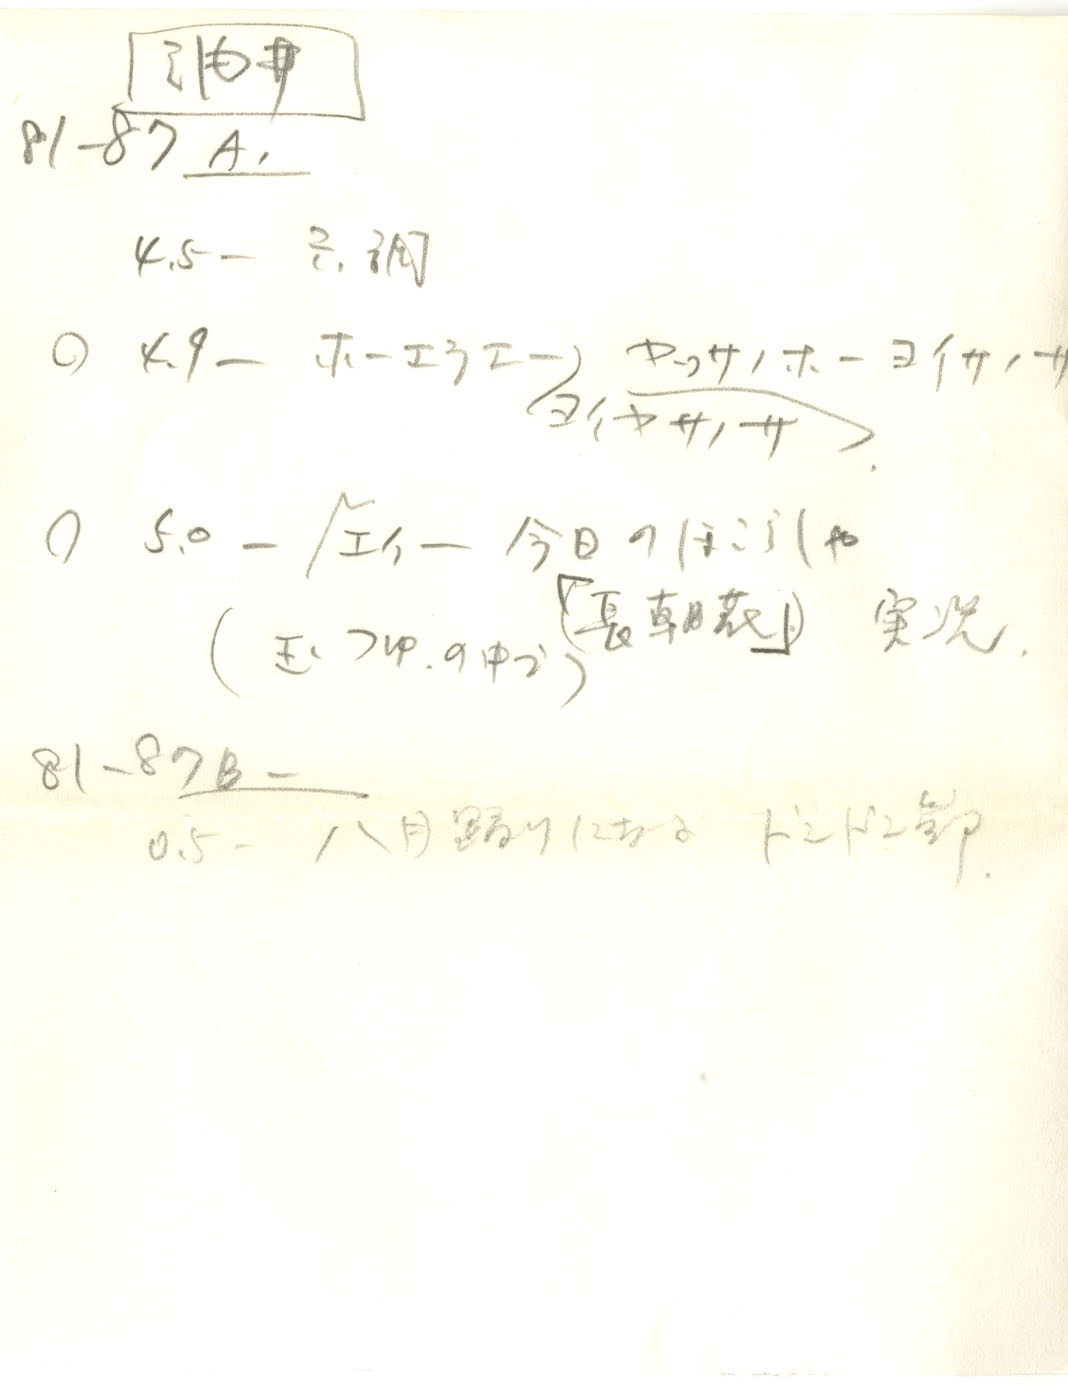 81-87 A.
4.5 ー
○ 4.9 ー ホーエラエー ヤッサノホー ヨイサノサ
ヨイヤサノサ
○ 5.0 ー エイー 今日のほこらしゃ
「長朝花」 実況.
の中で)
81-87B ー
0.5 ー 八月踊りにおる ドンドン節.